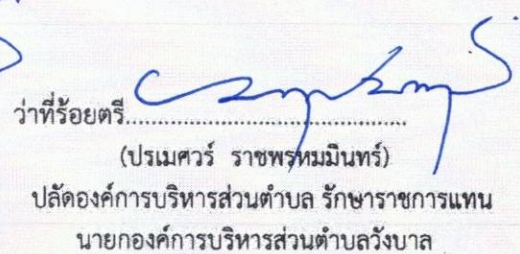 ว่าที่ร้อยตรี..........................................
(ปรเมศวร์ ราชพรหมมินทร์)
ปลัดองค์การบริหารส่วนตำบล รักษาราชการแทน
นายกองค์การบริหารส่วนตำบลวังบาล